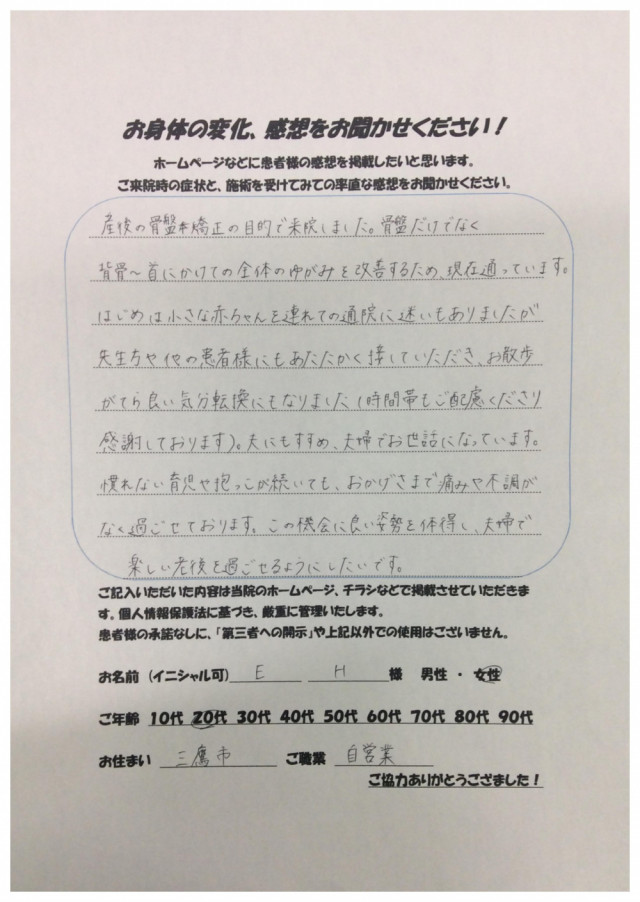 お身体の変化、感想をお聞かせください！
ホームページなどに患者様の感想を掲載したいと思います。
ご来院時の症状と、施術を受けてみての率直な感想をお聞かせください。
産後の骨盤矯正の目的で来院しました。骨盤だけでなく
背骨～首にかけての全体のゆがみを改善するため、現在通っています。
はじめは小さな赤ちゃんを連れての通院に迷いもありましたが
先生方や他の患者様にもあたたかく接していただき、お散歩
がてら良い気分転換にもなりました(時間帯もご配慮くださり
感謝しております)。夫にもすすめ、夫婦でお世話になっています。
慣れない育児や抱っこが続いても、おかげさまで痛みや不調が
なく過ごせております。この機会に良い姿勢を体得し、夫婦で
楽しい産後を過ごせるようにしたいです。
ご記入いただいた内容は当院のホームページ、チラシなどで掲載させていただきま
す。個人情報保護法に基づき、厳重に管理いたします。
患者様の承諾なしに、「第三者への開示」や上記以外での使用はございません。
お名前（イニシャル可） E H 様 男性 ・ 女性
ご年齢 10代 20代 30代 40代 50代 60代 70代 80代 90代
お住まい 三鷹市 ご職業 自営業
ご協力ありがとうござました！